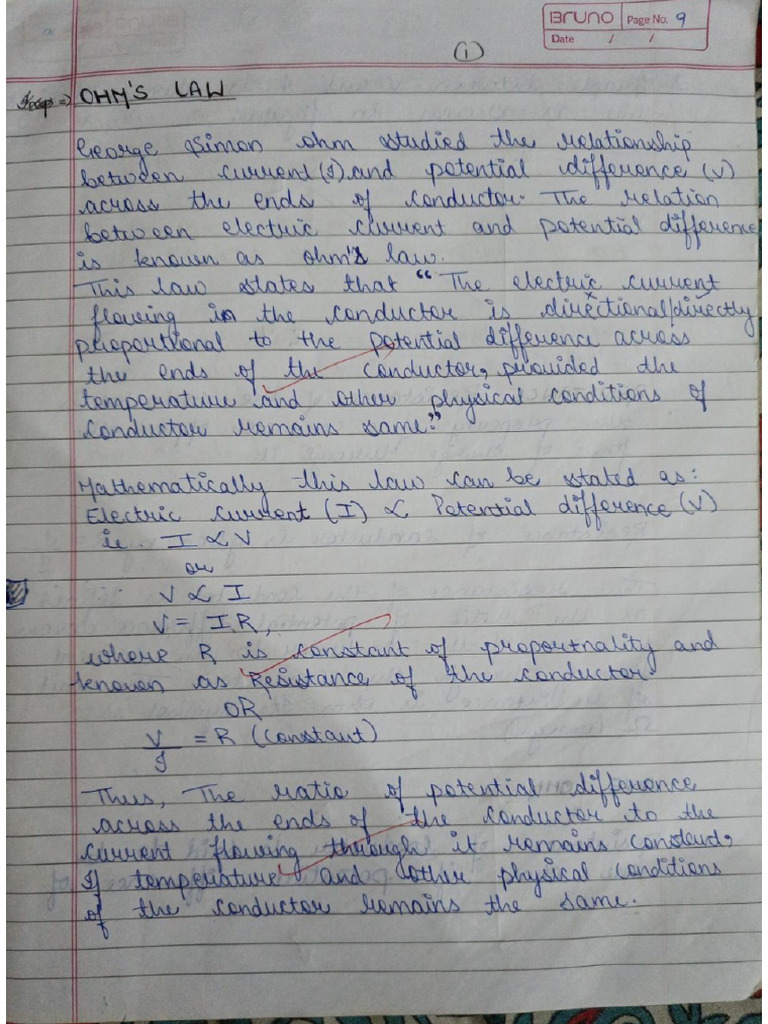 Bruno Page No. 9
Date / /
(1)
OHM'S LAW
George Simon ohm studied the relationship
between current (I) and potential difference (V)
across the ends of conductor. The relation
between electric current and potential difference
is known as ohm's law.
This law states that "The electric current
flowing in the conductor is directional/directly
proportional to the potential difference across
the ends of the conductor, provided the
temperature and other physical conditions of
conductor remains same."
Mathematically this law can be stated as:
Electric current (I) ∝ Potential difference (V)
ie I ∝ V
or
V ∝ I
V = IR,
where R is constant of proportnality and
known as Resistance of the conductor
OR
V/I = R (constant)
Thus, The ratio of potential difference
across the ends of the conductor to the
current flowing through it remains constant,
If temperature and other physical conditions
of the conductor remains the same.